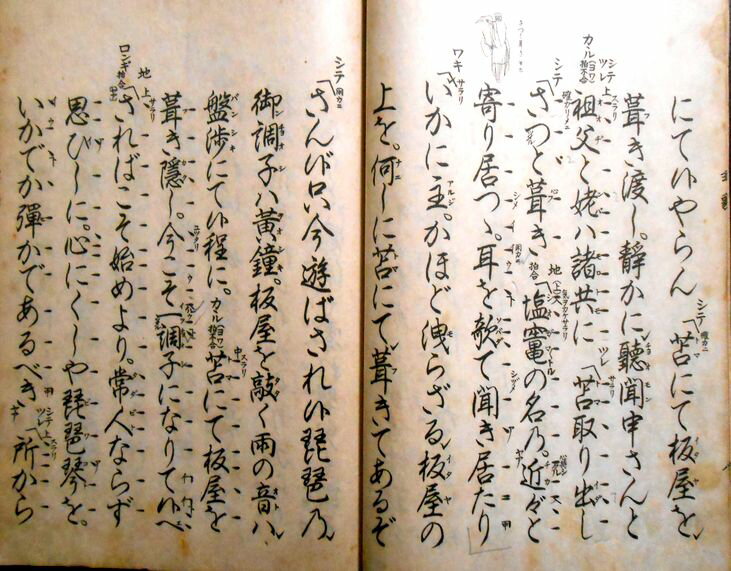 にて候やらん シテ「苫にて板屋を
葺き渡し。靜かに聽聞申さんと
シテ ツレ 上 祖父と姥ハ諸共に ツレ「苫取り出し
シテ「さつと葺き 地 塩竈の名乃。近々と
寄り居つゝ。耳を欹て聞き居たり
ワキ サラリ「いかに主。かほど洩らざる板屋の
上を。何しに苫にて葺きてあるぞ
シテ「さん候只今遊ばされ候琵琶乃
御調子ハ黃鐘。板屋を敲く雨の音ハ
盤渉にて候程に。カヽル 苫にて板屋を
葺き隱し。今こそ一調子になりて候へ
ロンギ 地 上 サラリ「さればこそ始めより。常人ならず
思ひしに。心にくしや琵琶琴を。
いかでか彈かであるべき シテ ツレ 上 所から